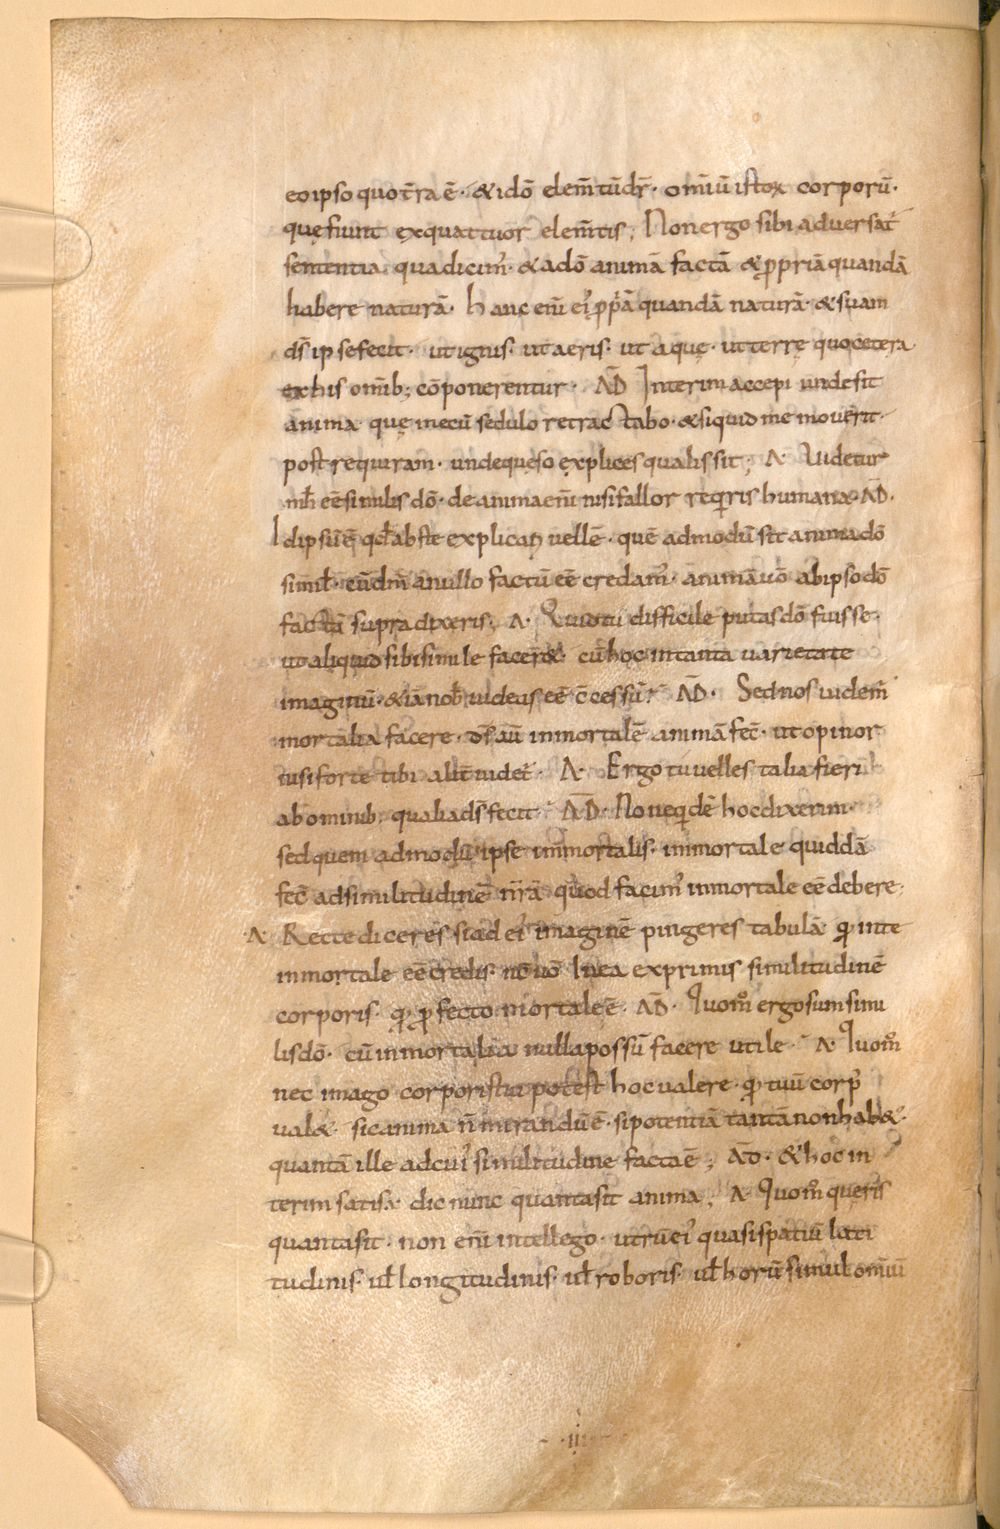 eo ipso quo t̄ra ē · & idō elem̄tū dr̄ · om̄iū istoꝝ corporū ·
quę fiunt ex quattuor elem̄tis ; Non ergo sibi adversat᷑
sententia qua dicim᷒ · & a dō animā factā & ꝓpriā quandā
habere naturā · Hanc eni̅ ei᷒ ꝓpͥā quandā naturā · & suam
ds̄ ipse fecit · ut ignis · ut aeris · ut aquę · ut terrę quo cetera
ex his om̄ib; cōponerentur · AD̄ Interim accepi unde sit
anima quę mecū sedulo retractabo · & si quid me moverit
post requiram · unde queso explices qualis sit ; A · Videtur
mͪ eē similis dō · de anima eni̅ nisi fallor reqͥris humana · AD̄ ·
Id ipsū ē qđ abs te explicari vellē · quē admodū sit anima dō
simil̄ · eūdm̄ a nullo factū eē credam᷒ · animā ūo ab ipso dō
factā supra dixeris ; A · Quid tu difficile putas dō fuisse ·
ut aliquid sibi simile facer& · cū hoc in tanta uarietate
imaginū · & iā nob̄ uideas eē c̄cessū ? AD̄ · Sed nos uidem᷒
mortalia facere · ds̄ aū inmortalē animā fec̄ · ut opinor
nisi forte tibi alit̄ uidet᷑ · A · Ergo tu uelles talia fieri
ab ominib; qualia ds̄ fecit ? AD̄ · Non eqͥdē hoc dixerim ·
sed quem admodū ipse inmortalis · inmortale quiddā
fec̄ ad similitudinē nr̄ā quod facim᷒ inmortale eē debere ·
A · Recte diceres si ad ei᷒ imaginē pingeres tabulā qđ in te
inmortale eē credis · nc̄ ūo in ea exprimis similitudinē
corporis · qđ ꝓfecto mortale ē · AD̄ · Quom̊ ergo sum simi
lis dō · cū inmortalia nulla possū facere ut ile · A · Quom̊
nec imago corporis tui potest hoc valere · qđ tuū corp᷒
ual& · sic anima n̄ mirandū ē · si potentiā tantā non hab& ·
quantā ille ad cui᷒ similitudine facta ē ; AD̄ · & hoc in
terim satis ÷ dic nunc quanta sit anima ; A · Quom̊ queris
quanta sit · non eni̅ intellego · utrū ei᷒ quasi spatiū lati
tudinis · ul̄ longitudinis · ul̄ roboris · ul̄ horū simul om̄iū
· ii ·